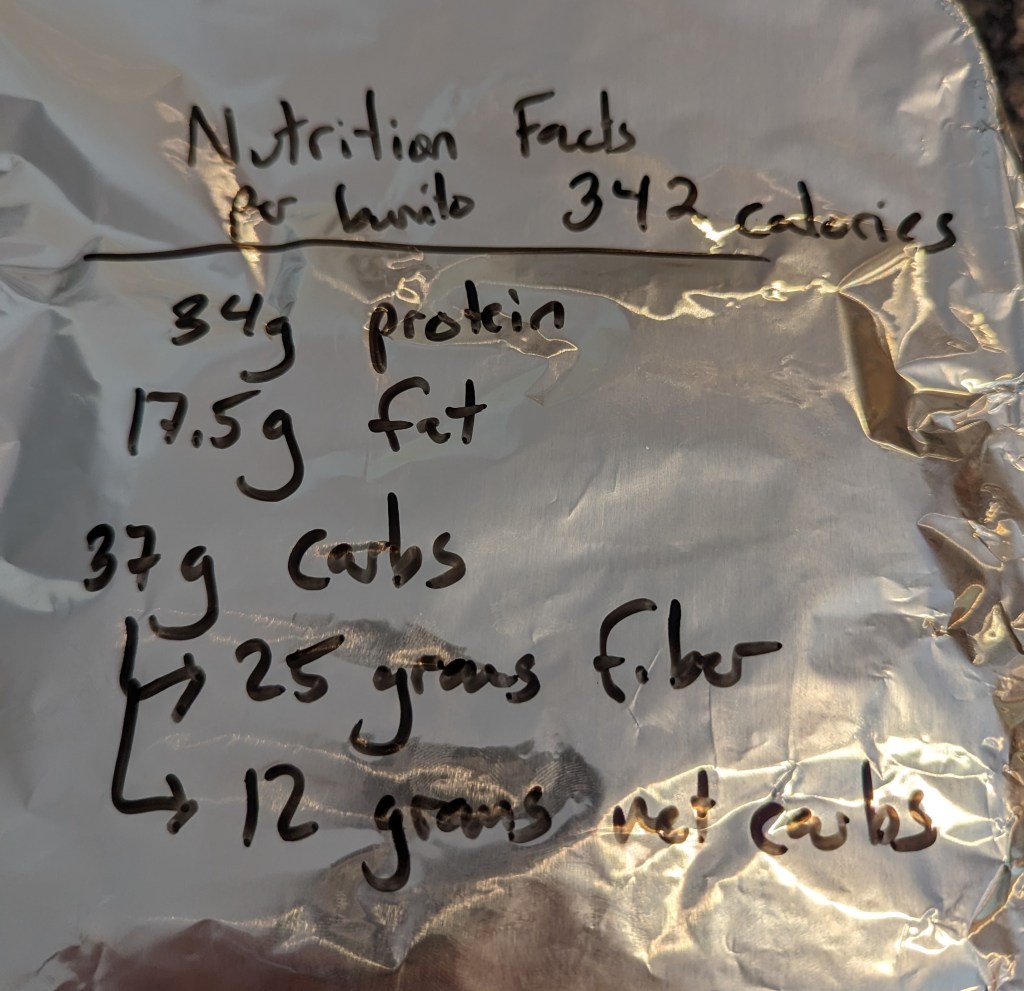 Nutrition Facts
Per burrito 342 calories
34g protein
17.5g fat
37g carbs
↳ 25 grams fiber
↳ 12 grams net carbs